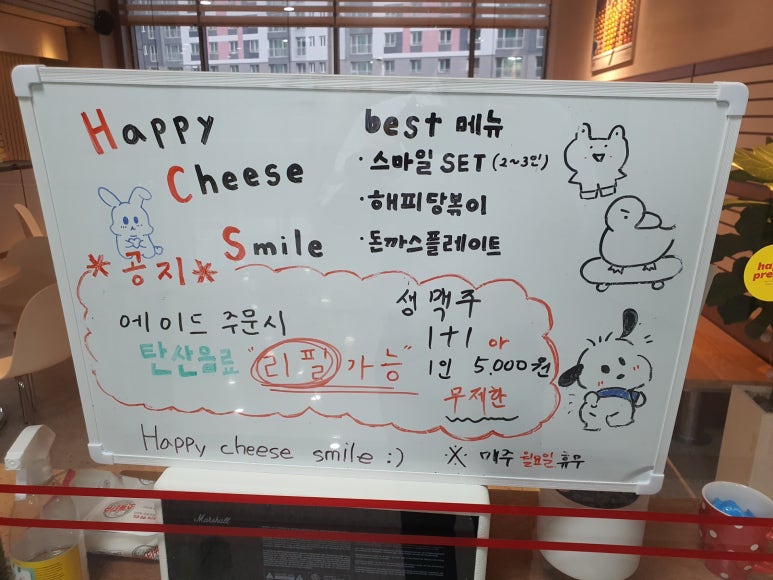 Happy
Cheese
Smile
best 메뉴
· 스마일 SET (2~3인)
· 해피당볶이
· 돈까스플레이트
*공지*
에이드 주문시
탄산음료 "리필가능"
생맥주
1+1 or
1인 5,000원
무제한
Happy cheese smile :)
※ 매주 월요일 휴무
Marshall